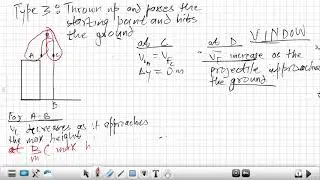 Type 3 : Thrown up and passes the
starting point and hits
the ground
at C
V = V
Δy = 0 m
at D
VF increase as the
projectile approaches
the ground
WINDOW
B
For A-B
Vf decreases as it approaches
the max height
at B ( max h